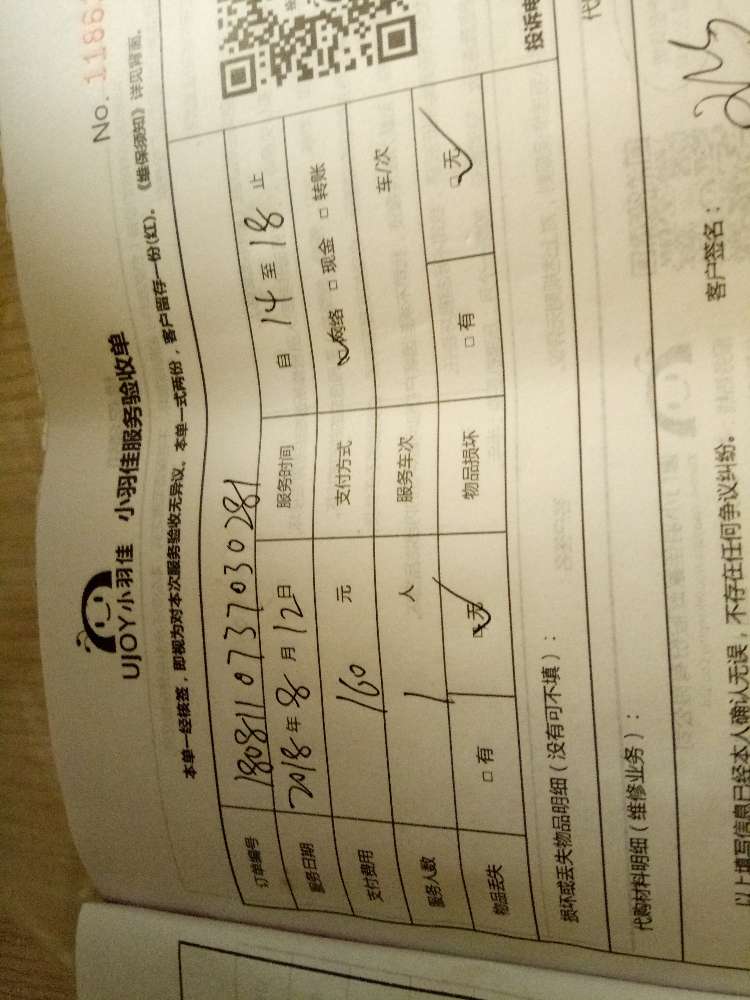 No. 1186
UJOY小羽佳 小羽佳服务验收单
本单一经核签，即视为对本次服务验收无异议。本单一式两份，客户留存一份(红)。《维保须知》详见背面。
订单编号 1808110737030281
服务日期 2018年8月12日 服务时间 自 14 至 18 止
支付费用 160 元 支付方式 ☑网络 □现金 □转账
服务人数 1 人 服务车次 车/次
物品丢失 □有 ☑无 物品损坏 □有 ☑无
投诉电
损坏或丢失物品明细（没有可不填）：
代
代购材料明细（维修业务）：
以上填写信息已经本人确认无误，不存在任何争议纠纷。 客户签名：